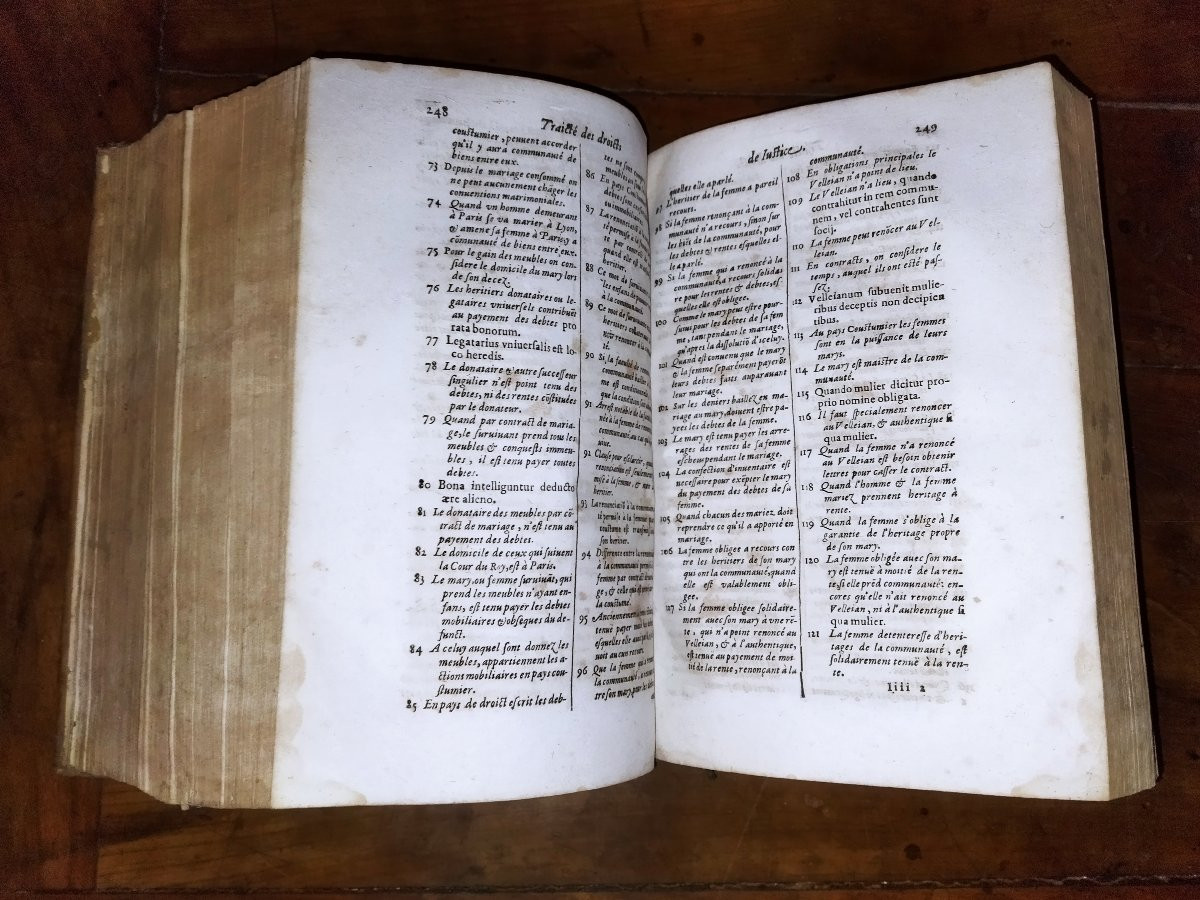 248
Traicté des droicts
coustumier, peuvent accorder
qu'il y aura communauté de
biens entre eux.
73 Depuis le mariage consommé on
ne peut aucunement chãger les
conventions matrimoniales.
74 Quand vn homme demeurant
à Paris se va marier à Lyon,
& amene sa femme à Paris, y a
cõmunauté de biens entre eux.
75 Pour le gain des meubles on con-
sidere le domicile du mary lors
de son decez.
76 Les heritiers donataires ou le-
gataires vniversels contribuẽt
au payement des debtes pro
rata bonorum.
77 Legatarius vniversalis est lo-
co heredis.
78 Le donataire & autre successeur
singulier n'est point tenu des
debtes, ni des rentes cõstituées
par le donateur.
79 Quand par contract de maria-
ge, le survivant prend tous les
meubles & conquests immeu-
bles, il est tenu payer toutes
debtes.
80 Bona intelliguntur deducto
ære alieno.
81 Le donataire des meubles par cõ-
tract de mariage, n'est tenu au
payement des debtes.
82 Le domicile de ceux qui suivent
la Cour du Roy, est à Paris.
83 Le mary, ou femme survivãt, qui
prend les meubles n'ayant en-
fans, est tenu payer les debtes
mobiliaires & obseques du de-
funct.
84 A celuy auquel sont donnez les
meubles, appartiennent les a-
ctions mobiliaires en pays cou-
stumier.
85 En pays de droict escrit les deb-
86 En pays
87 La renonciation
88 Ce mot de
à la communauté
89 Ce mot de
heritiers
renoncer à la
90 Si la faculté de
91 Arrest notable
92
renonciation est seulement
heritier.
93 La renonciation à la
son heritier.
94 Difference entre la
à la communauté
femme par
la coustume.
95 Anciennement
tenuë payer
esquelles elle
96 Que la femme qui
la communauté,
tre son mary, pour les
de Iustice.
249
quelles elle a parlé.
97 L'heritier de la femme a pareil
recours.
98 Si la femme renonçant à la com-
munauté n'a recours, sinon sur
les biẽs de la communauté, pour
les debtes & rentes esquelles el-
le a parlé.
99 Si la femme qui a renoncé à la
communauté, a recours solidai-
re pour les rentes & debtes es-
quelles elle est obligee.
100 Comme le mary peut estre pour-
suivi pour les debtes de sa fem
me, tant pendant le mariage,
qu'apres la dissolutiõ d'iceluy.
101 Quand est convenu que le mary
& la femme separément payerõt
leurs debtes faits auparavant
leur mariage.
102 Sur les deniers baillez en ma-
riage au mary, doivent estre pa-
yees les debtes de la femme.
103 Le mary est tenu payer les arre-
rages des rentes de sa femme
escheus pendant le mariage.
104 La confection d'inventaire est
necessaire pour exẽpter le mary
du payement des debtes de sa
femme.
105 Quand chacun des mariez doit
reprendre ce qu'il a apporté en
mariage.
106 La femme obligee a recours con
tre les heritiers de son mary
qui ont la communauté, quand
elle est valablement obli-
gee.
107 Si la femme obligee solidaire-
ment avec son mary à vne rẽ-
te, qui n'a point renoncé au
Velleian, & à l'authentique,
est tenuë au payement de moi-
tié de la rente, renonçant à la
communauté.
108 En obligations principales le
Velleian n'a point de lieu.
109 Le Velleian n'a lieu, quando
contrahitur in rem commu-
nem, vel contrahentes sunt
socij.
110 La femme peut renõcer au Vel-
leian.
111 En contracts, on considere le
temps, auquel ils ont esté pas-
sez.
112 Velleianum subuenit mulie-
ribus deceptis non decipien
tibus.
113 Au pays Coustumier les femmes
sont en la puissance de leurs
marys.
114 Le mary est maistre de la com-
munauté.
115 Quando mulier dicitur pro-
prio nomine obligata.
116 Il faut specialement renoncer
au Velleian, & authentique si
qua mulier.
117 Quand la femme n'a renoncé
au Velleian est besoin obtenir
lettres pour casser le contract.
118 Quand l'homme & la femme
mariez prennent heritage à
rente.
119 Quand la femme s'oblige à la
garantie de l'heritage propre
de son mary.
120 La femme obligée avec son ma-
ry est tenuë à moitié de la ren-
te, si elle prẽd communauté: en-
cores qu'elle n'ait renoncé au
Velleian, ni à l'authentique si
qua mulier.
121 La femme detenteresse d'heri-
tages de la communauté, est
solidairement tenuë à la ren-
te.
Iiii 2